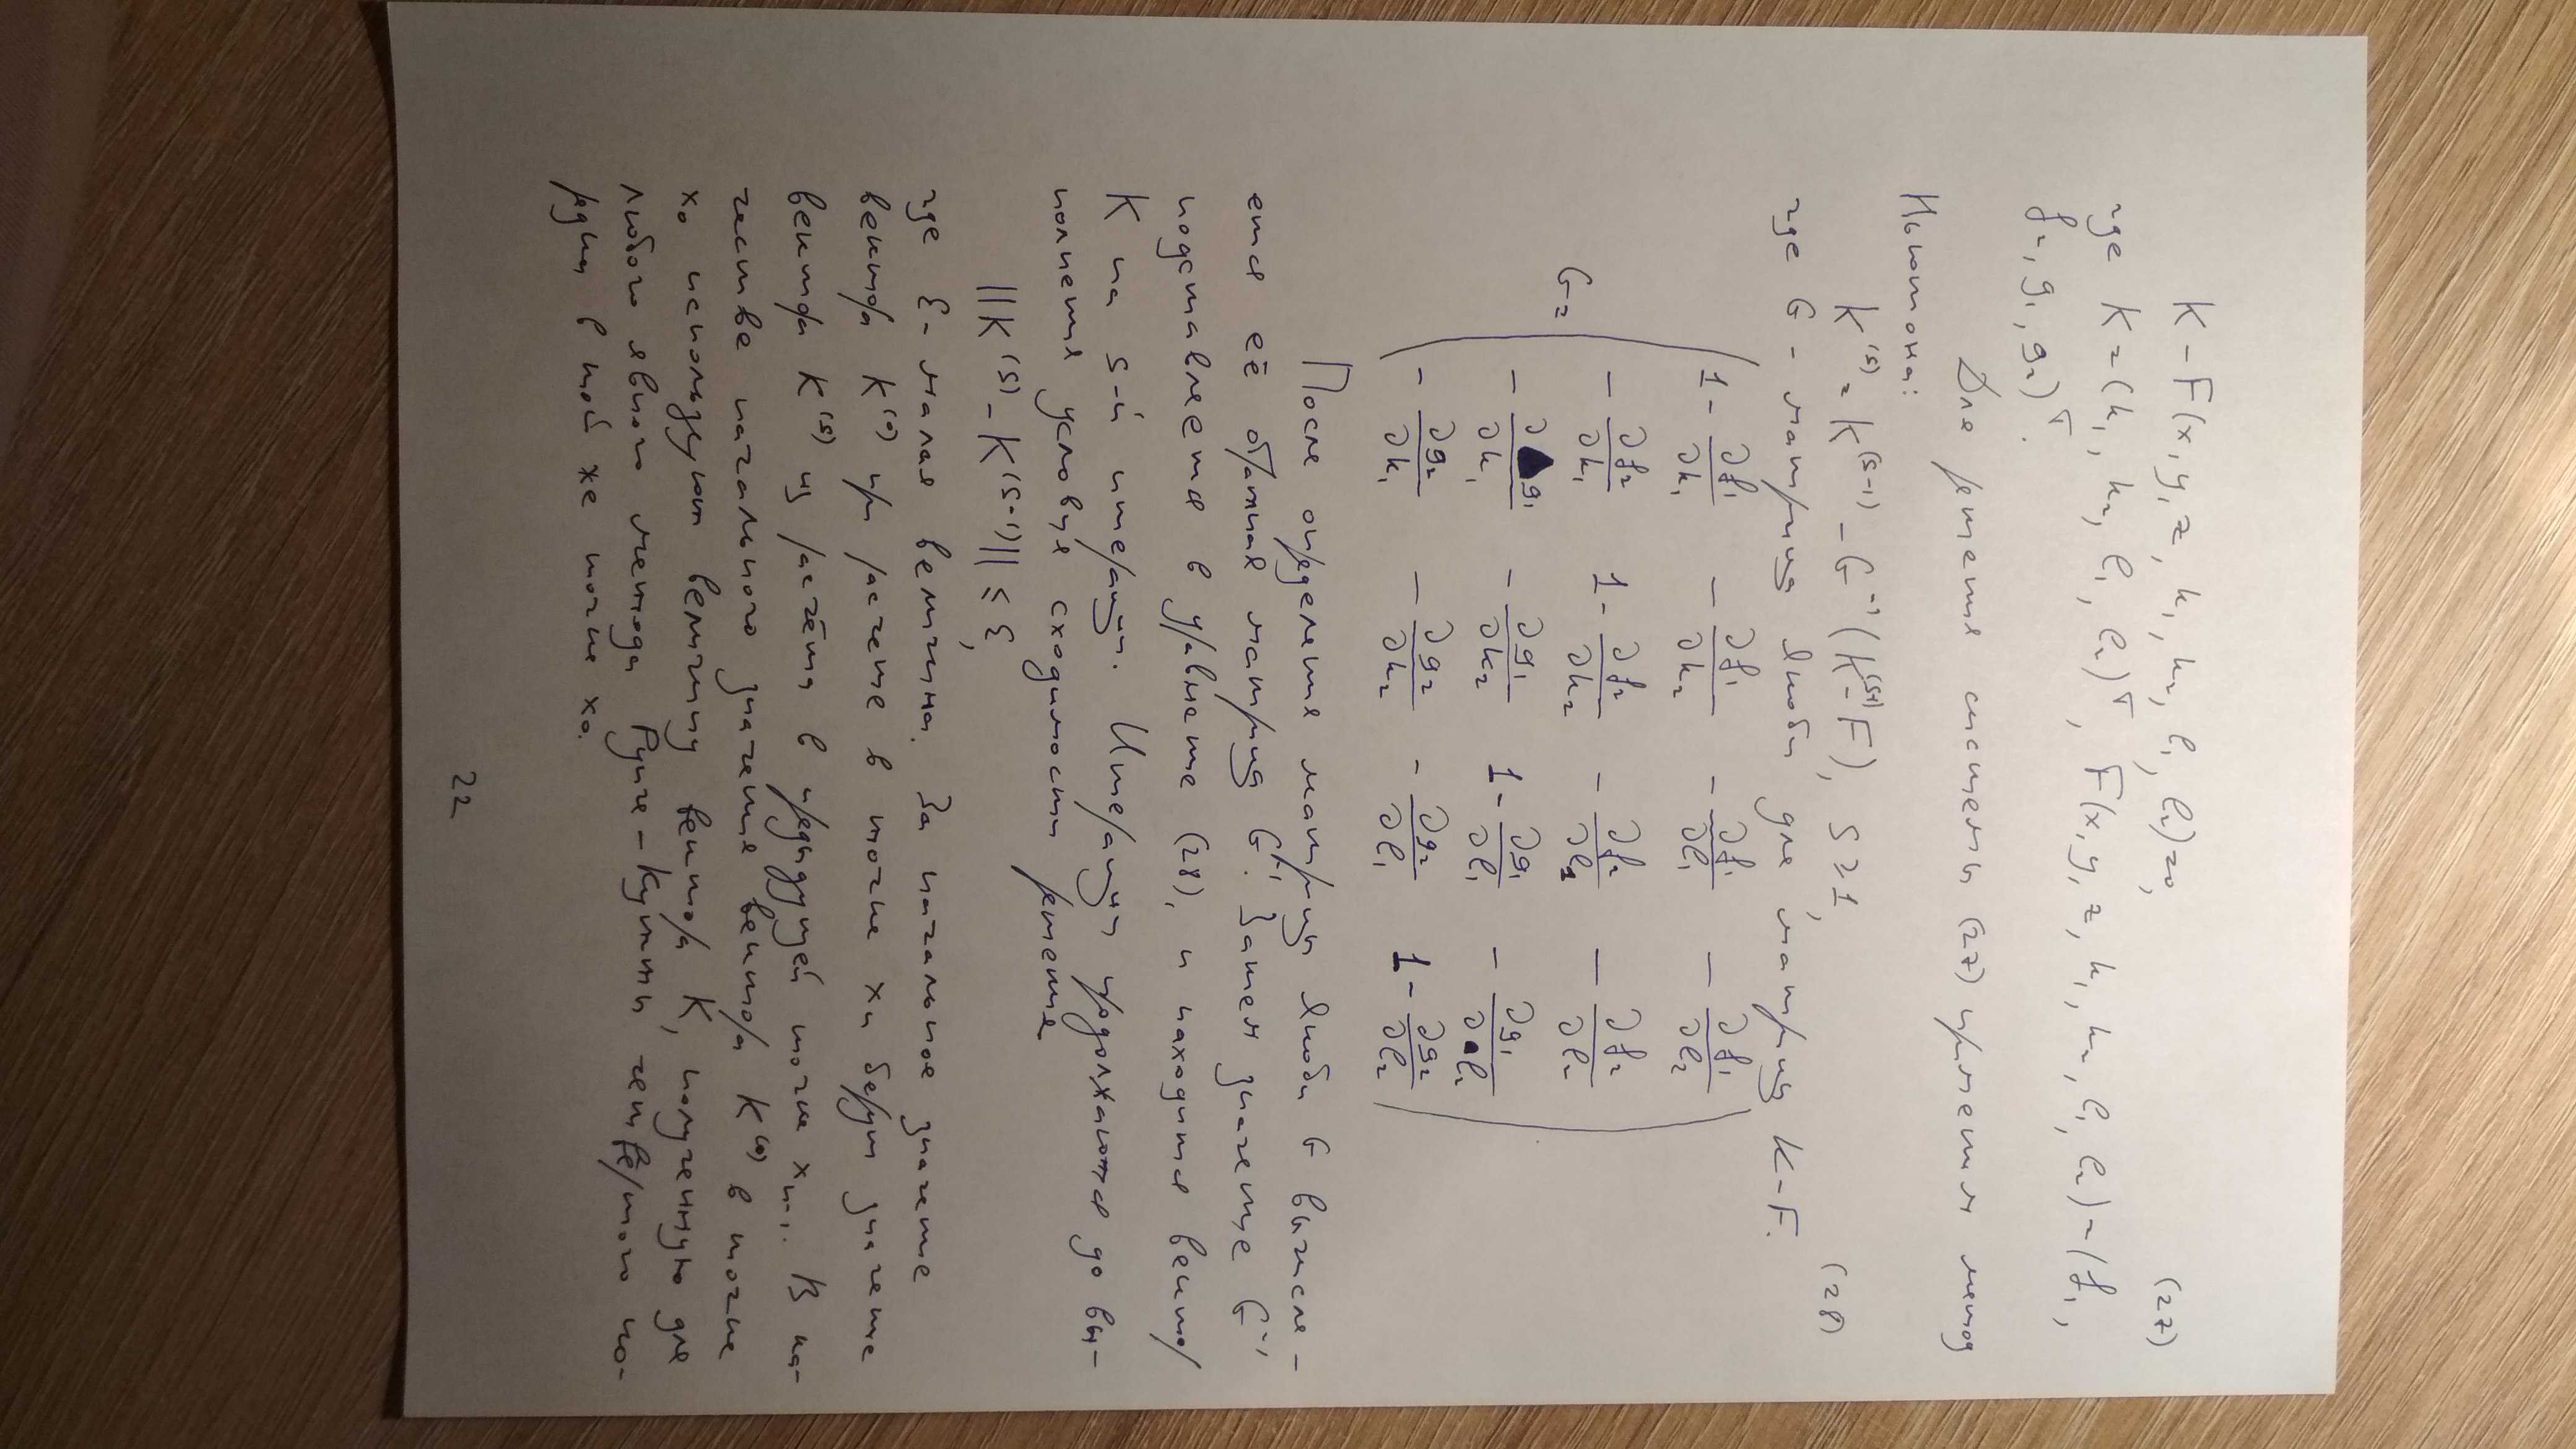 K – F(x, y, z, k₁, k₂, l₁, l₂) = 0, (27)
где K = (k₁, k₂, l₁, l₂)ᵀ, F(x, y, z, k₁, k₂, l₁, l₂) = (f₁,
f₂, g₁, g₂)ᵀ.
Для решения системы (27) применим метод
Ньютона:
K⁽ˢ⁾ = K⁽ˢ⁻¹⁾ – G⁻¹(K⁽ˢ⁻¹⁾ – F), s ≥ 1, (28)
где G – матрица Якоби для матрицы K – F.
1 – ∂f₁/∂k₁ – ∂f₁/∂k₂ – ∂f₁/∂l₁ – ∂f₁/∂l₂
– ∂f₂/∂k₁ 1 – ∂f₂/∂k₂ – ∂f₂/∂l₁ – ∂f₂/∂l₂
G =
– ∂g₁/∂k₁ – ∂g₁/∂k₂ 1 – ∂g₁/∂l₁ – ∂g₁/∂l₂
– ∂g₂/∂k₁ – ∂g₂/∂k₂ – ∂g₂/∂l₁ 1 – ∂g₂/∂l₂
После определения матрицы Якоби G вычисля-
ется её обратная матрица G⁻¹. Затем значение G⁻¹
подставляется в уравнение (28), и находится вектор
K на s-й итерации. Итерации продолжаются до вы-
полнения условия сходимости решения
||K⁽ˢ⁾ – K⁽ˢ⁻¹⁾|| ≤ ε,
где ε – малая величина. За начальное значение
вектора K⁽⁰⁾ при расчете в точке xₙ берут значение
вектора K⁽ˢ⁾ из расчёта в предыдущей точке xₙ₋₁. В ка-
честве начального значения вектора K⁽⁰⁾ в точке
x₀ используют величину вектора K, полученную для
любого явного метода Рунге – Кутты четвёртого по-
рядка в той же точке x₀.
22